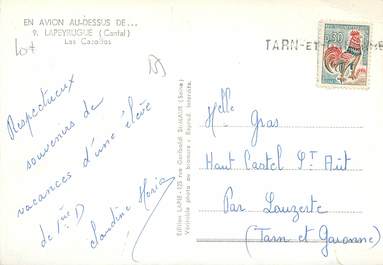 EN AVION AU-DESSUS DE...
9. LAPEYRUGUE (Cantal)
Las Cazallas
Lot
Respectueux
souvenirs de
vacances d'une élève
de 1ère D
Claudine
Edition LAPIE - 123 rue Garibaldi St-MAUR (Seine)
Véritable photo au bromure - Reprod. interdite.
TARN-ET-
0,30
Melle Gras
Haut Castel St Aût
Par Lauzerte
(Tarn et Garonne)